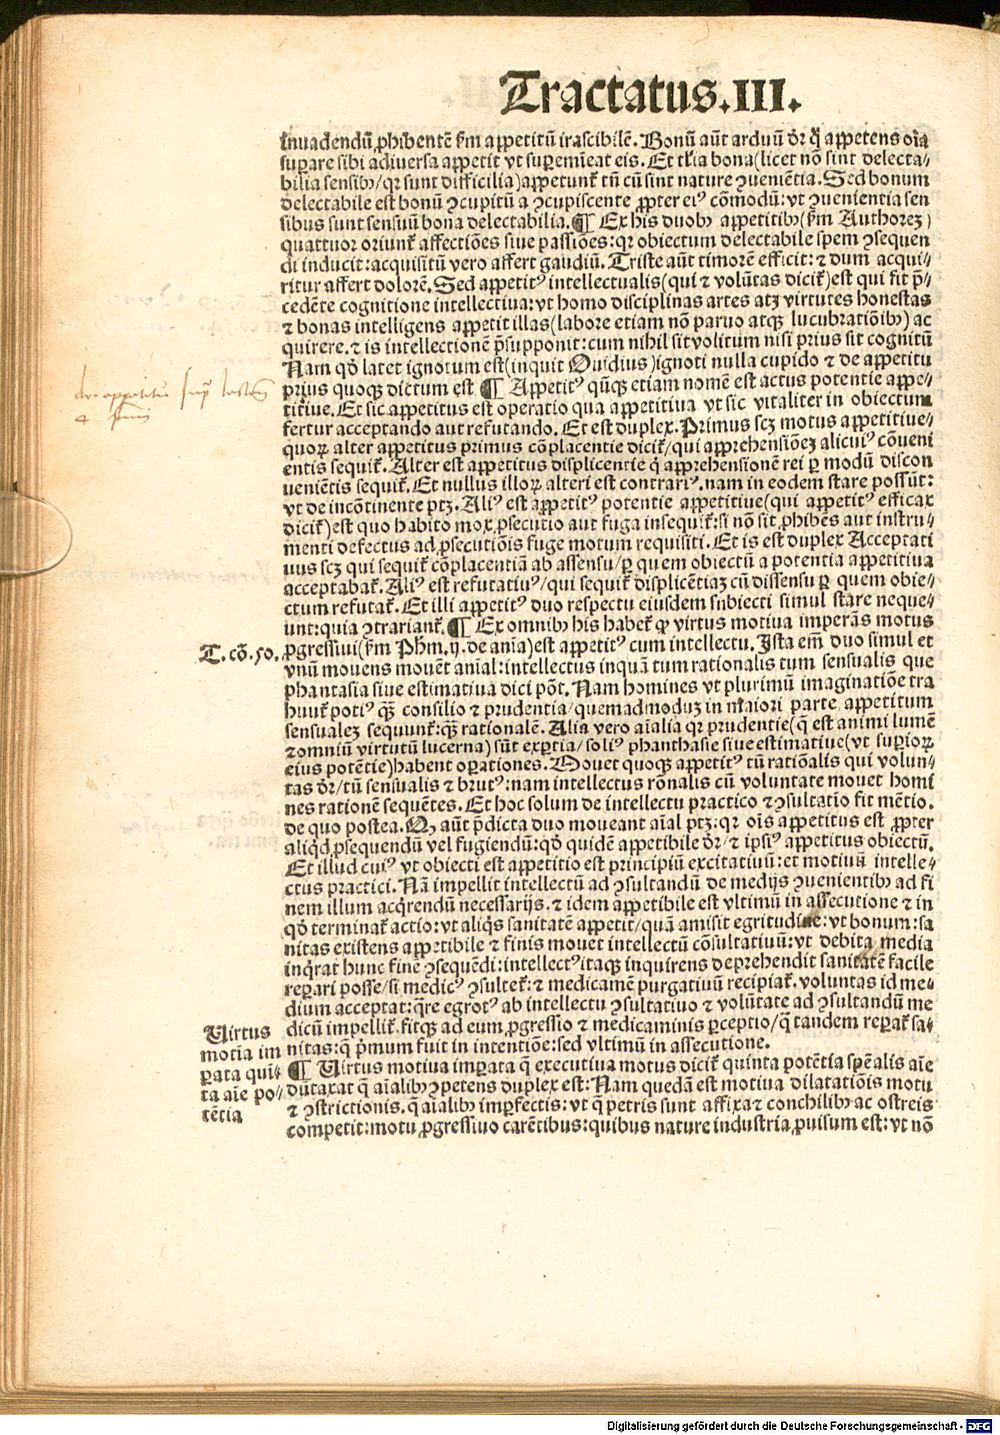 Tractatus.III.
inuadendū ꝓhibentē ẜm appetitū irascibilē. Bonū aūt arduū dr̄ qd̄ appetens oīa
suꝑare sibi aduersa appetit vt suꝑemineat eis. Et tlīa bona(licet nō sint delecta⸗
bilia sensibꝰ/qr sunt difficilia)appetunt᷑ tn̄ cū sint nature ꝯueniētia. Sed bonum
delectabile est bonū ꝯcupitū a ꝯcupiscente ꝓpter eiꝰ cōmodū: vt ꝯuenientia sen
sibus sunt sensuū bona delectabilia. ¶ Ex his duobꝫ appetitibꝫ(ẜm Authorez)
quattuor oriunt᷑ affectiōes siue passiōes: qr obiectum delectabile spem ꝯsequen
di inducit: acquisitū vero affert gaudiū. Triste aūt timorē efficit: ⁊ dum acqui⸗
ritur affert dolorē. Sed appetitꝰ intellectualis(qui ⁊ volūtas dicit᷑)est qui fit p̄⸗
cedēte cognitione intellectiua: vt homo disciplinas artes atqꝫ virtutes honestas
⁊ bonas intelligens appetit illas(labore etiam nō paruo atqꝫ lucubratiōibꝰ) ac
quirere. ⁊ is intellectionē p̄supponit: cum nihil sit volitum nisi prius sit cognitū
Nam qd̄ latet ignotum est(inquit Ouidius)ignoti nulla cupido ⁊ de appetitu
prius quoqꝫ dictum est ¶ Appetitꝰ qn̄qꝫ etiam nomē est actus potentie appe⸗
titiue. Et sic appetitus est operatio qua appetitiua vt sic vitaliter in obiectum
fertur acceptando aut refutando. Et est duplex. Primus scz motus appetitiue⸗
quoꝝ alter appetitus primus cōplacentie dicit᷑/qui apprehensiōez alicuiꝰ cōueni
entis sequit᷑. Alter est appetitus displicentie q̇ apprehensionē rei ꝑ modū discon
uenientis sequit᷑. Et nullus illoꝝ alteri est contrariꝰ. nam in eodem stare possūt:
vt de incōtinente ptz. Aliꝰ est appetitꝰ potentie appetitiue(qui appetitꝰ efficax
dicit᷑)est quo habito mox ꝓsecutio aut fuga insequit᷑: si nō sit ꝓhibēs aut instru⸗
menti defectus ad ꝓsecutiōis fuge motum requisiti. Et is est duplex Acceptati
uus scz qui sequit᷑ cōplacentiā ab assensu/ꝑ quem obiectū a potentia appetitiua
acceptabat᷑. Aliꝰ est refutatiuꝰ/qui sequit᷑ displicētiaz cū dissensu ꝑ quem obie⸗
ctum refutat᷑. Et illi appetitꝰ duo respectu eiusdem subiecti simul stare neque⸗
unt: quia ꝯtrariant᷑. ¶ Ex omnibꝫ his habet᷑ ꝙ virtus motiua imperās motus
T. cō. 50.
ꝓgressiui(ẜm Phm̄. ij. de aīa)est appetitꝰ cum intellectu. Ista em̄ duo simul et
vnū mouens mouēt aīal: intellectus inquā tum rationalis tum sensualis que
phantasia siue estimatiua dici pōt. Nam homines vt plurimū imaginatiōe tra
hunt᷑ potiꝰ qꝫ̄ consilio ⁊ prudentia/quemadmoduz in maiori parte appetitum
sensualez sequunt᷑: qꝫ̄ rationalē. Alia vero aīalia qr prudentie(q̄ est animi lumē
⁊omniū virtutū lucerna)sūt exꝑtia/soliꝰ phanthasie siue estimatiue(vt suꝑioꝝ
eius potētie)habent oꝑationes. Mouet quoqꝫ appetitꝰ tū ratiōalis qui volun⸗
tas dr̄/tū sensualis ⁊ brutꝰ: nam intellectus rōnalis cū voluntate mouet homi
nes rationē sequētes. Et hoc solum de intellectu practico ⁊ ꝯsultatio fit mētio.
de quo postea. Qꝫ aūt p̄dicta duo moueant aīal ptz: qr oīs appetitus est ꝓpter
aliqd̄ ꝓsequendū vel fugiendū: qd̄ quidē appetibile dr̄/⁊ ipsiꝰ appetitus obiectū.
Et illud cuiꝰ vt obiecti est appetitio est principiū excitatiuū: et motiuū intelle⸗
ctus practici. Nā impellit intellectū ad ꝯsultandū de medijs ꝯuenientibꝫ ad fi
nem illum acq̇rendū necessarijs. ⁊ idem appetibile est vltimū in assecutione ⁊ in
qd̄ terminat᷑ actio: vt aliq̇s sanitatē appetit/quā amisit egritudine: vt bonum: sa
nitas existens appetibile ⁊ finis mouet intellectū cōsultatiuū: vt debita media
inq̇rat hunc finē ꝯsequēdi: intellectꝰitaqꝫ inquirens deprehendit sanitatē facile
reꝑari posse/si medicꝰ ꝯsultet᷑: ⁊ medicamē purgatiuū recipiat᷑. voluntas id me⸗
dium acceptat: q̄re egrotꝰ ab intellectu ꝯsultatiuo ⁊ volūtate ad ꝯsultandū me
dicū impellit᷑. fitqꝫ ad eum ꝓgressio ⁊ medicaminis ꝑceptio/q̄ tandem reꝑat᷑ sa⸗
nitas: q̄ pⁱmum fuit in intentiōe: sed vltimū in assecutione.
Uirtus
motīa im
ꝑata quī⸗
ta aīe po⸗
tētia
¶ Uirtus motiua imꝑata q̄ executiua motus dicit᷑ quinta potētia spēalis aīe
dūtaxat q̄ aīalibꝫ ꝯpetens duplex est: Nam quedā est motiua dilatatiōis motu
⁊ ꝯstrictionis. q̄ aīalibꝫ imꝑfectis: vt q̄ petris sunt affixa ⁊ conchilibꝫ ac ostreis
competit: motu ꝓgressiuo carētibus: quibus nature industria ꝓuisum est: vt nō
Digitalisierung gefördert durch die Deutsche Forschungsgemeinschaft - DFG